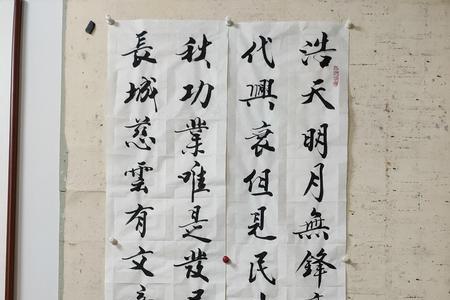 浩天明月無鋒
代興衰但見民
秋功業唯是發
長城慈雲有文